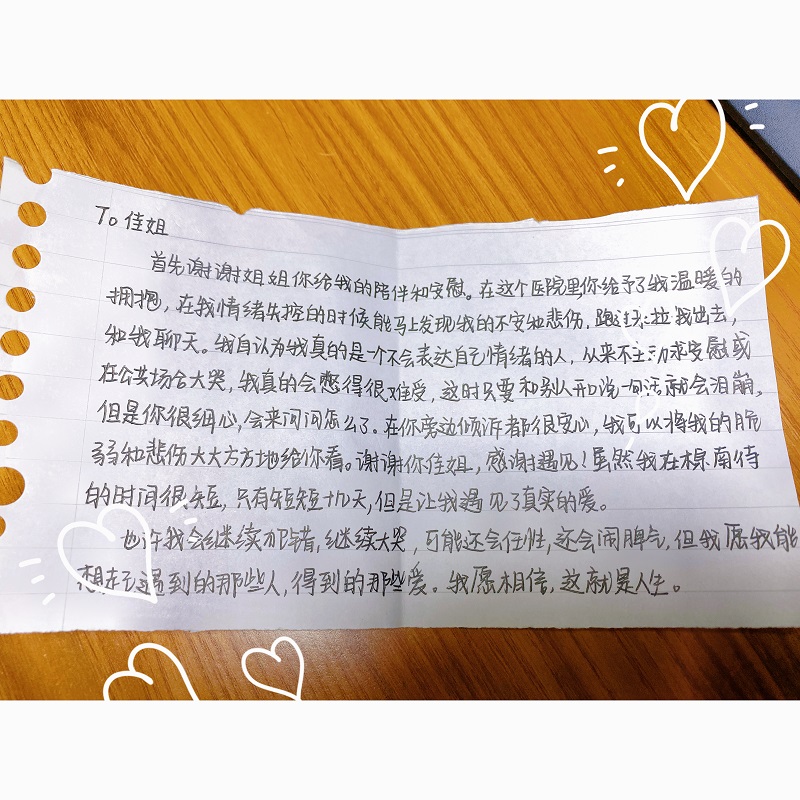 To 佳姐
首先谢谢姐姐你给我的陪伴和安慰。在这个医院里你给予了我温暖的
拥抱,在我情绪失控的时候能马上发现我的不安和悲伤,跑过来拉我出去,
和我聊天。我自认为我真的是一个不会表达自己情绪的人,从来不主动求安慰或
在公共场合大哭,我真的会憋得很难受,这时只要和别人开口说一句话就会泪崩,
但是你很细心,会来问问怎么了。在你旁边倾诉都很安心,我可以将我的脆
弱和悲伤大大方方地给你看。谢谢你佳姐,感谢遇见!虽然我在康南待
的时间很短,只有短短十几天,但是让我遇见了真实的爱。
也许我会继续,继续大哭,可能还会任性,还会闹脾气,但我愿我能
想起遇到的那些人,得到的那些爱。我愿相信,这就是人生。